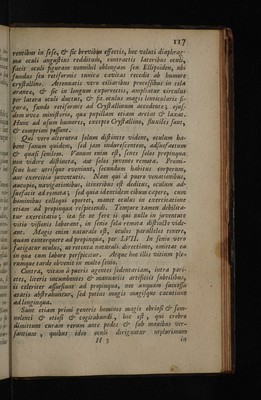 117
ventibus in sese, & sic brevibus effectis, hoc veluti diaphrag-
ma oculi angustius redditum, contractis lateribus oculi,
facit oculi figuram nonnihil oblongam seu Ellipoiden, ubi
fundus seu retiformis tunica cavitas recedit ab humore
crystallino. Attenuatis vero ciliaribus processibus in rela-
xrantes, & sic in longum exporrectis, ampliatur circulus
per latera oculi ductus, & fit oculus magis lenticularis fi-
gura, fundo retiformis ad Crystallinum accedente; ejus-
dem vero ministerio, qua pupillam etiam arctat & laxat.
Nam ad usum humores, excepto Crystallino, fluxiles sunt,
& comprimi possunt.
Qui vero alterutra solum distincte vident, oculum ha-
bent sanum quidem, sed jam indurescentem, adsuefactum
& quasi senilem. Vanum enim est, senes solos propinqua
non videre distincta, aut solos juvenes remota. Promi-
scue hoc utrisque evenit, secundum habitus corporum,
aut exercitia juventutis. Nam qui à puero venationibus,
aucupiis, navigationibus, itineribus est deditus, oculum ad-
suefacit ad remota; sed quia identidem cibum cepere, cum
hominibus colloqui oportet, manet oculus in exercitatione
etiam ad propinqua respiciendi. Tempore tamen debilita-
tur exercitatio; ita fit ut fere is qui nullo in juventute
vitio visionis laborant, in senio sola remota distincte vide-
ant. Magis enim naturale est, oculos parallelos teneri,
quam contorquere ad propinqua, per LVII. In senio vero
fatigatur oculus, ac retenta naturali directione, omittat ea
in qua cum labore perspicitur. Atque hoc illis vitium ple-
rumque tarde obvenit in multo senio.
Contra, vitam à pueris agentes sedentariam, intra pari-
etes, literis incumbentes & manuariis artificiis subtilibus,
ii celeriter assuescunt ad propinqua, nec unquam successu
ætatis abstrahuntur, sed potius magis magisque cæcutiunt
ad longinqua.
Sunt etiam primi generis homines magis obviosi & som-
nolenti & otiosi & cogitabundi, hoc est, qui crebro
dimittunt curam rerum ante pedes & sub manibus ver-
santium, quibus ideo oculi diriguntur utplurimum
H 3
in